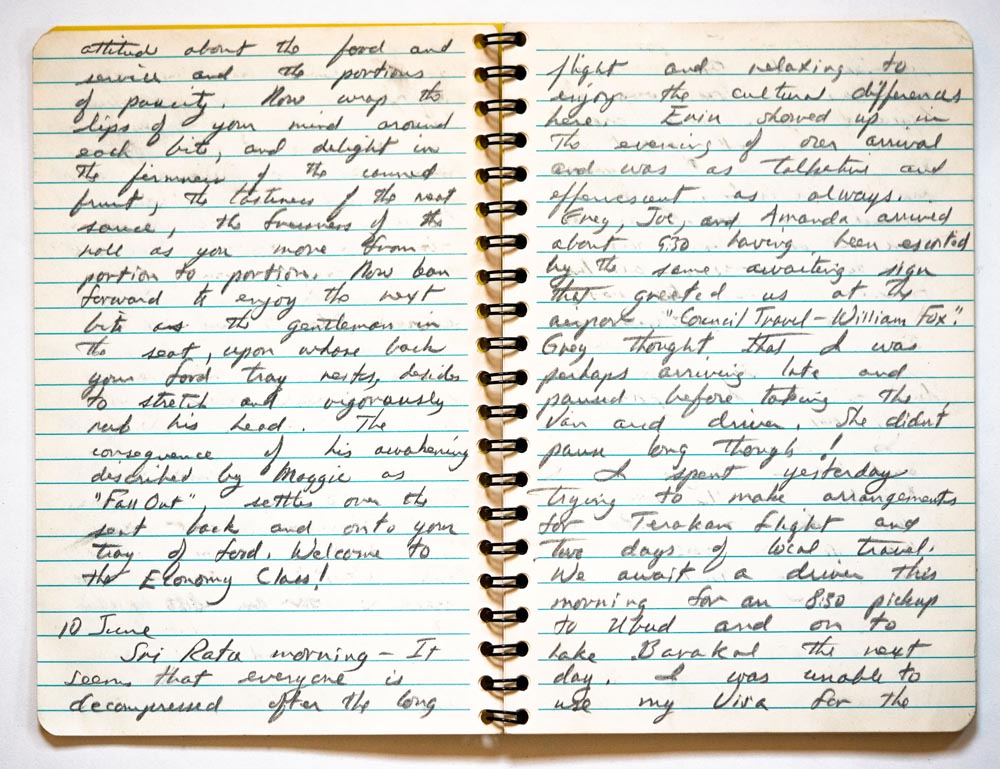 attitude about the food and
service and the portions
of paucity. Now wrap the
lips of your mind around
each bite, and delight in
the firmness of the canned
fruit, the tastiness of the meat
sauce, the firmness of the
roll as you move from
portion to portion. Now lean
forward to enjoy the next
bite as the gentleman in
the seat, upon whose back
your food tray rests, desides
to stretch and vigorously
rub his head. The
consequence of his awakening
described by Maggie as
"Fall Out" settles over the
seat back and onto your
tray of food. Welcome to
the Economy Class!
10 June
Sri Ratu morning - It
seems that everyone is
decompressed after the long
flight and relaxing to
enjoy the cultural differences
here. Erin showed up in
the evening of our arrival
and was as talkative and
effervescent as always.
Greg, Joe, and Amanda arrived
about 9:30 having been escorted
by the same awaiting sign
that greeted us at the
airport, "Council Travel - William Fox".
Greg thought that I was
perhaps arriving late and
paused before taking the
van and driver. She didn't
pause long though!
I spent yesterday
trying to make arrangements
for Terakan flight and
two days of local travel.
We await a driver this
morning for an 8:30 pickup
to Ubud and on to
Lake Barakal the next
day. I was unable to
use my Visa for the